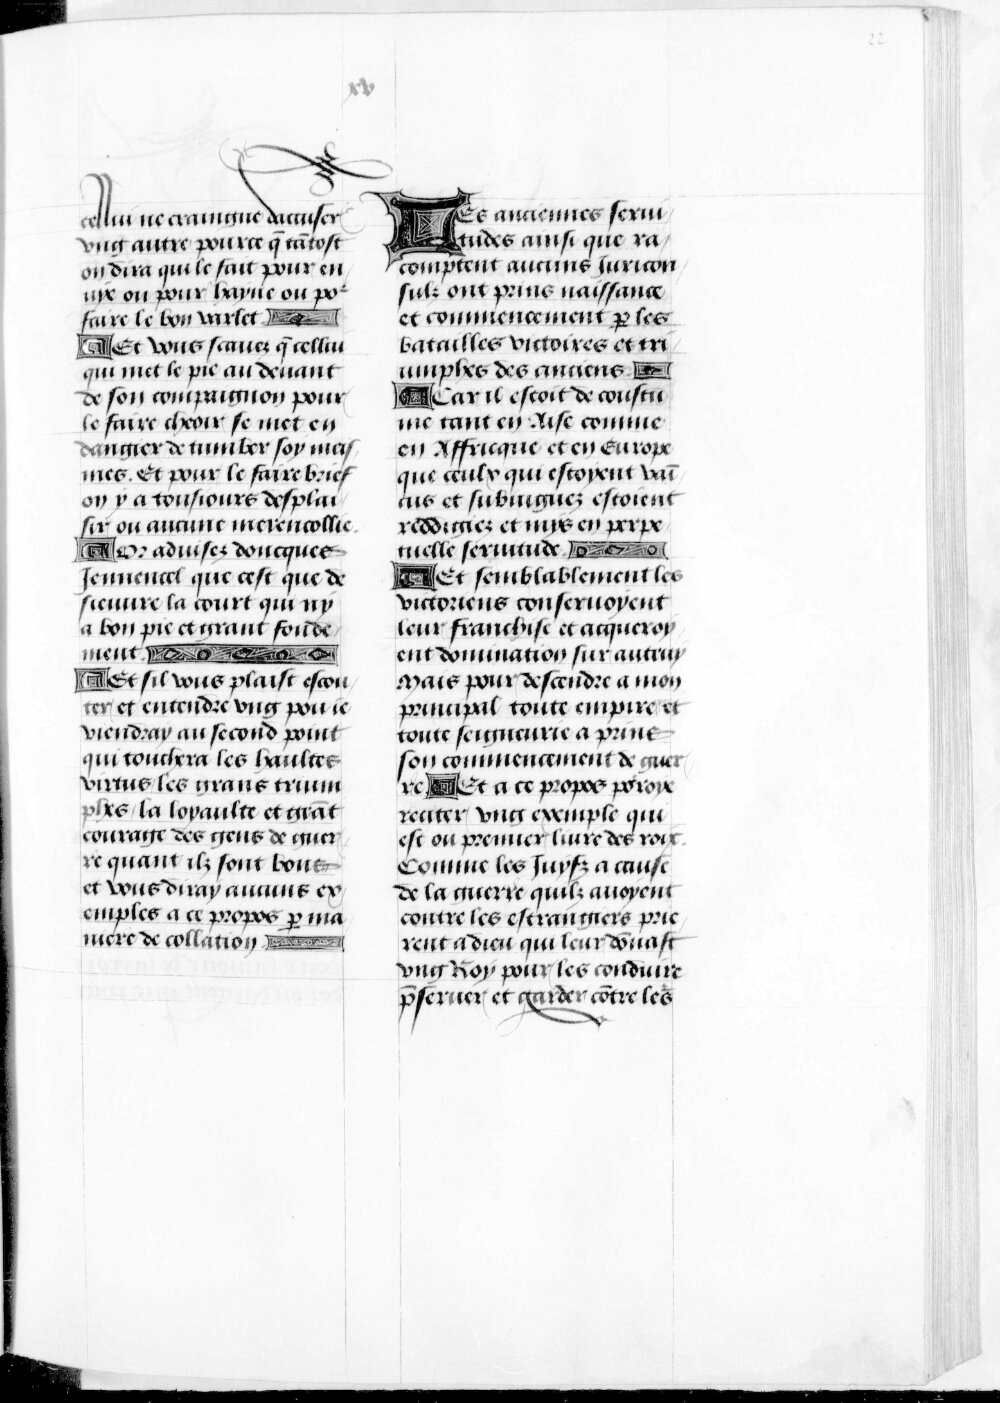 22
cellui ne craingne daccuser
vng autre pource q̄ tātost
on dira qui le fait pour en/
uye ou pour hayne ou poʳ
faire le bon varlet
Et vous scauez q̄ cellui
qui met le pie au deuant
de son compaignon pour
le faire cheoir se met en
dangier de tumber soy mes/
mes. Et pour le faire brief
on y a tousiours desplai/
sir ou aucune merencollie.
Or aduisez doncques
Jennencel que cest que de
sieuure la court qui ny
a bon pie et grant fonde/
ment.
Et sil vous plaist escou/
ter et entendre vng pou ie
viendray au second point
qui touchera les haultes
virtus les grans trium
phes / la loyaulte et grāt
courage des gens de guer/
re quant ilz sont bons
et vous diray aucuns ex
emples a ce propos p̱ ma
niere de collation
Les anciennes serui/
tudes ainsi que ra/
comptent aucuns Juricon
sulz ont prins naissance
et commencement p̱ les
batailles victoires et tri/
umphes des anciens.
Car il estoit de coustu
me tant en Aise comme
en Affricque et en Europe
que ceulx qui estoyent vaī
cus et subiuguez estoient
reddigiez et mys en perpe/
tuelle seruitude.
Et semblablement les
victoriens conseruoyent
leur franchise et acqueroy/
ent domination sur autruy
Mais pour descendre a mon
principal toute empire et
toute seigneurie a prins
son commencement de guer/
re. Et a ce propos pōroye
reciter vng exemple qui
est ou premier liure des roix.
Comme les Juyfz a cause
de la guerre quilz auoyent
contre les estrangiers prie/
rent a dieu qui leur dōnast
vng Roy pour les conduire
p̄seruer et garder cōtre les